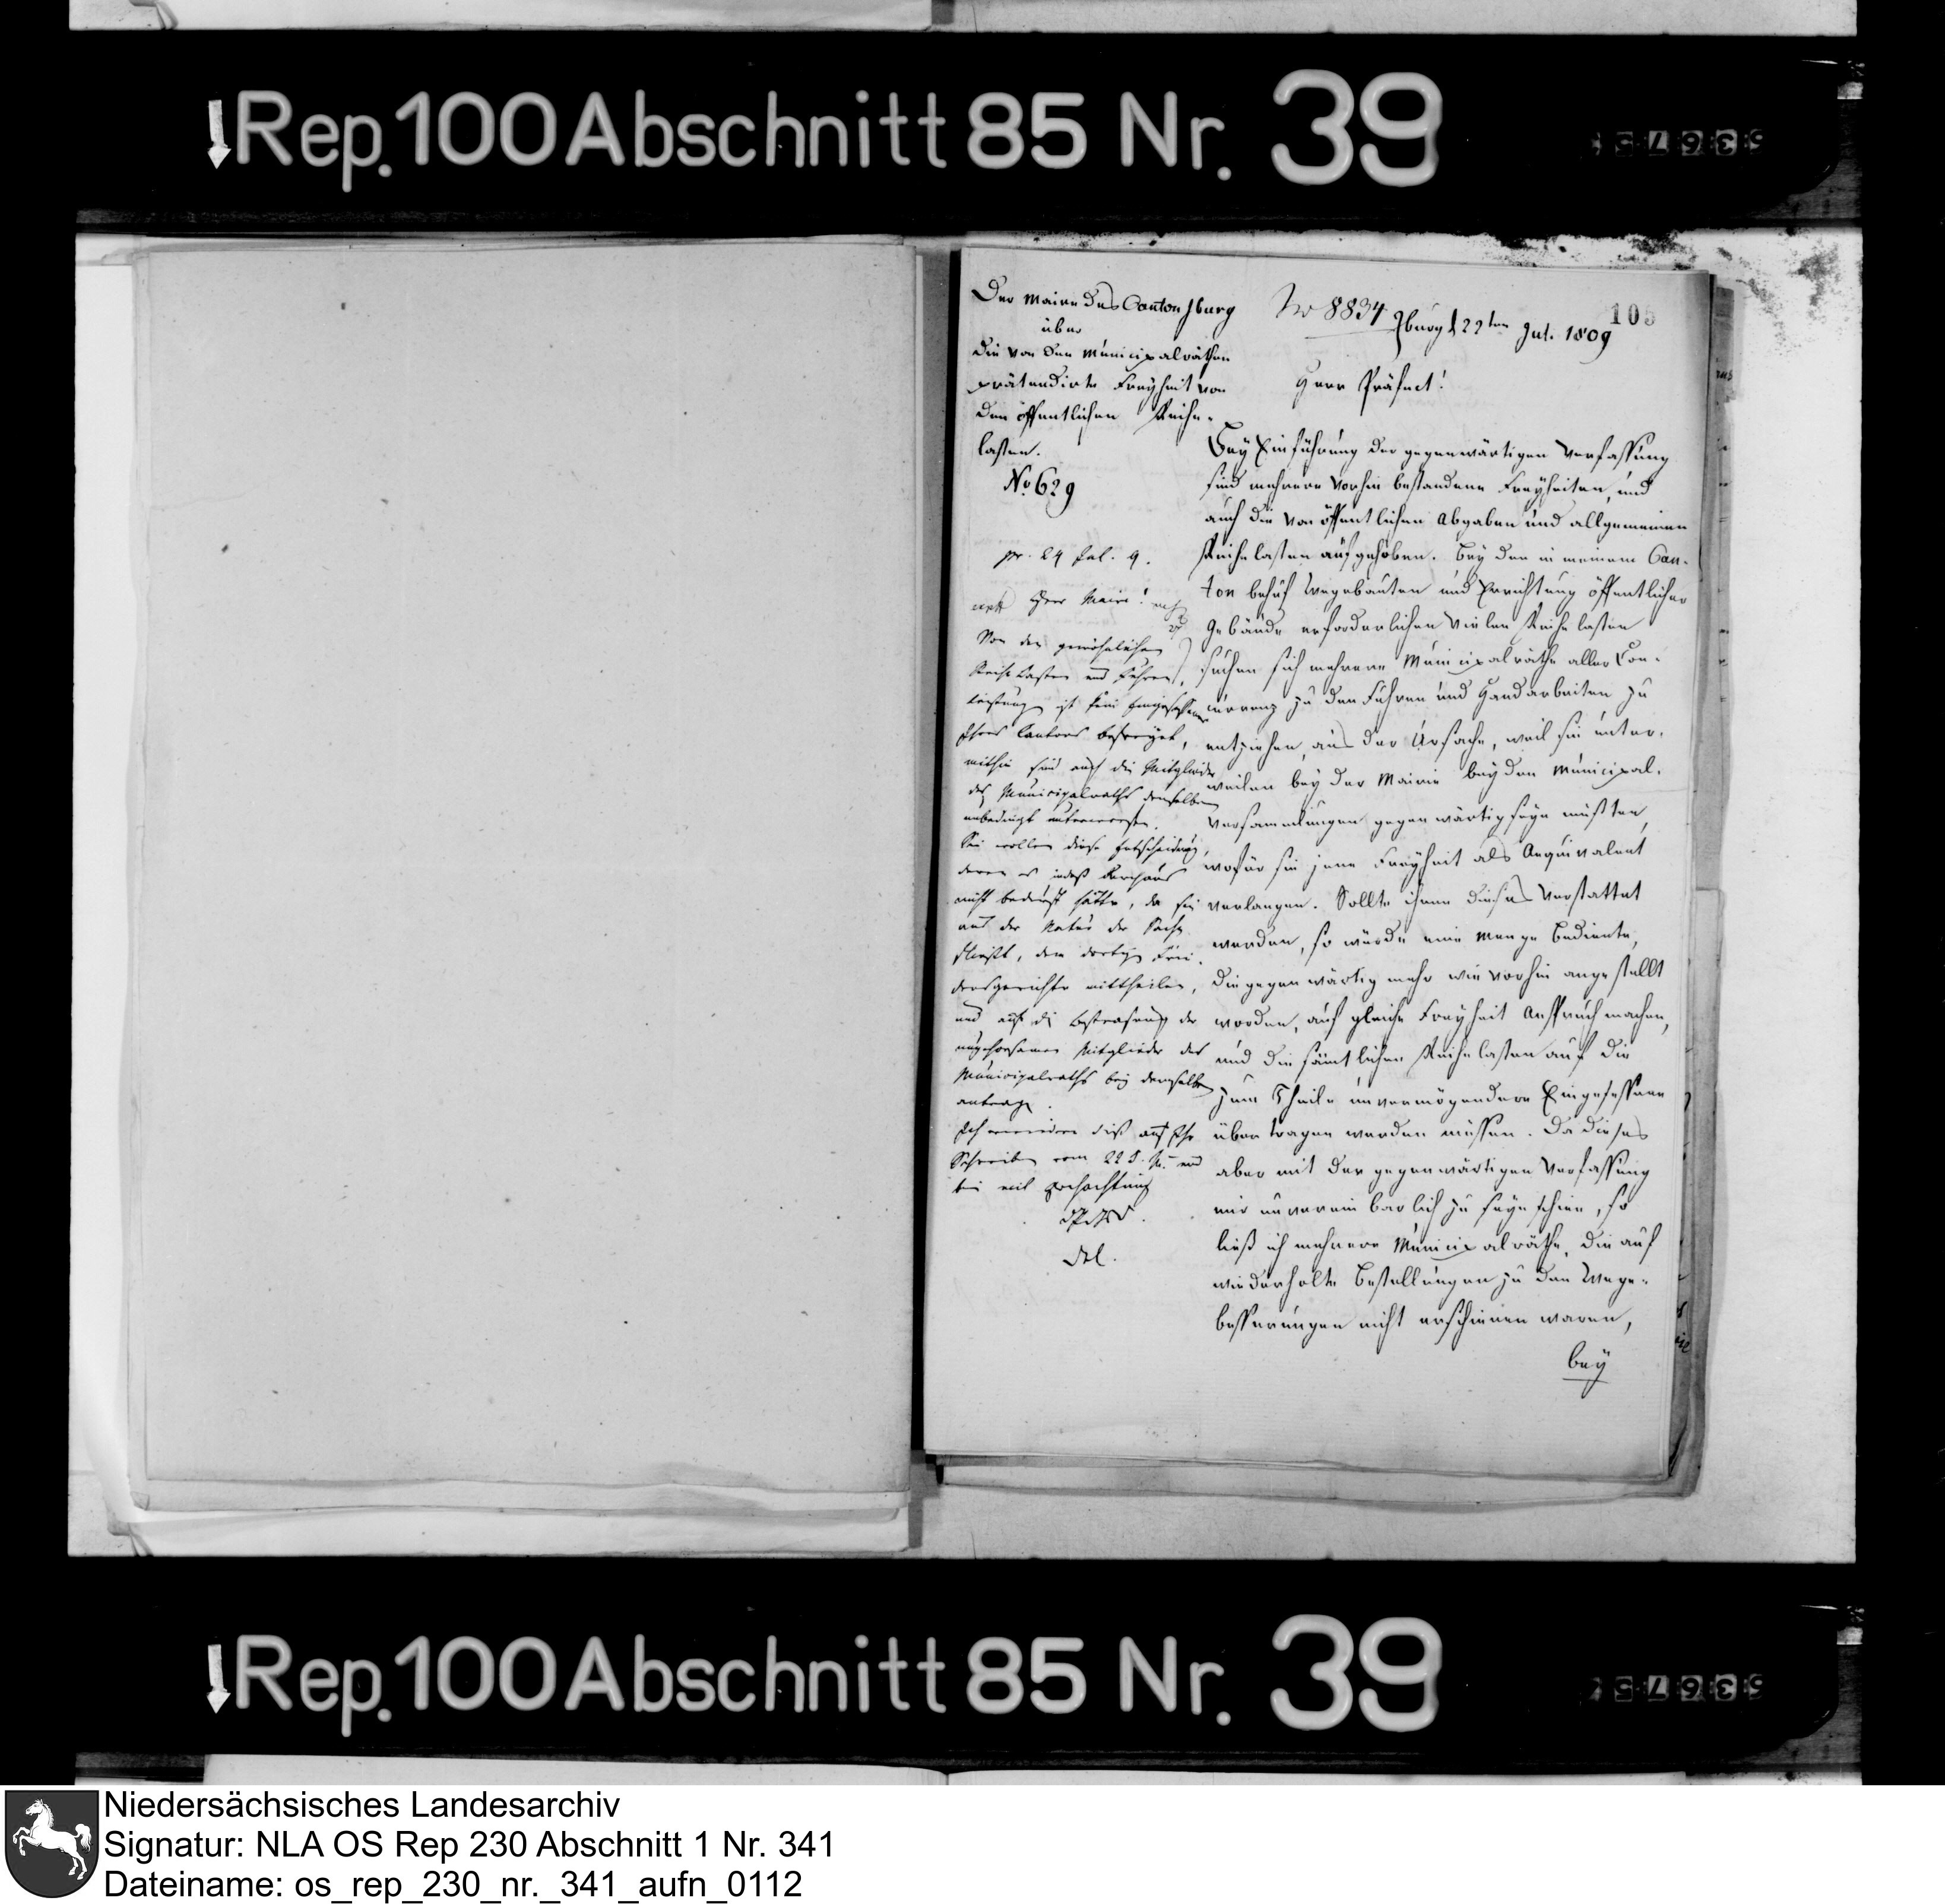 Rep. 100 Abschnitt 85 Nr. 39
Der Maire des Cantons Iburg
über
die von den Municipalräthen
prätendirte Freyheit von
den öffentlichen Reihe-
lasten.
No 629
pr. 24 Jul. 9.
Herr Maire!
Von den gewöhnlichen
Reihe Lasten und Fuhren
Leistung ist kein Eingesessener
Ihres Cantons befreyet,
mithin sind auch die Mitglieder
des Municipalraths denselben
unbedingt unterworfen.
Sie wollen diese Entscheidung,
deren es indeß durchaus
nicht bedurft hätte, da sie
aus der Natur der Sache
fließt, dem dortigen Frie-
densgerichte mittheilen,
und auf die Bestrafung der
ungehorsamen Mitglieder des
Municipalraths bei demselben
antragen.
Ich erwiedere dieß auf Ihr
Schreiben vom 22 d. M. und
bin mit Hochachtung
No 8834
105
Iburg d 22ten Jul. 1809
Herr Präfect!
Bey Einführung der gegenwärtigen Verfassung
sind mehrere vorhin bestandene Freyheiten, und
auch die von öffentlichen Abgaben und allgemeinen
Reihelasten aufgehoben. Bey den in meinem Can-
ton behuf Wegebauten und Errichtung öffentlicher
Gebäude erforderlichen vielen Reihelasten
suchen sich mehrere Municipalräthe aller Con-
currenz zu den Fuhren und Handarbeiten zu
entziehen, aus der Ursache, weil sie unter-
weilen bey der Mairie bey den Municipal-
versammlungen gegenwärtig seyn müßten,
wofür sie jene Freyheit als Aequivalent
verlangen. Sollte ihnen dieses verstattet
werden, so würde eine Menge Bediente,
die gegenwärtig mehr wie vorhin angestellt
worden, auf gleiche Freyheit Anspruch machen,
und die sämtlichen Reihelasten auf die
zum Theile unvermögendere Eingesessene
übertragen werden müssen. Da dieses
aber mit der gegenwärtigen Verfassung
mir unvereinbarlich zu seyn schien, so
ließ ich mehrere Municipalräthe, die auf
wiederholte Bestellungen zu den Wege-
besserungen nicht erschienen waren,
bey
Rep. 100 Abschnitt 85 Nr. 39
Niedersächsisches Landesarchiv
Signatur: NLA OS Rep 230 Abschnitt 1 Nr. 341
Dateiname: os_rep_230_nr._341_aufn_0112